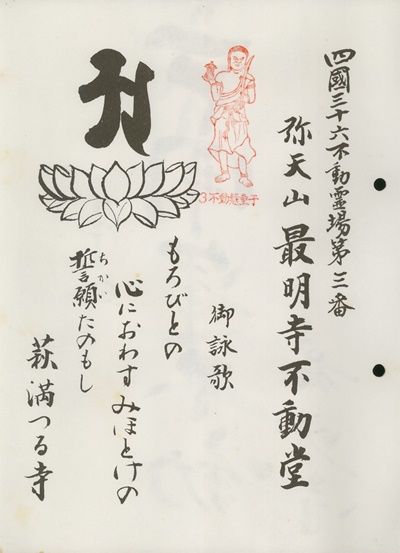 四國三十六不動霊場第三番
弥天山 最明寺不動堂
御詠歌
もろびとの
心におわす みほとけの
誓願たのもし
ちかい
萩満つる寺
3不動慧童子